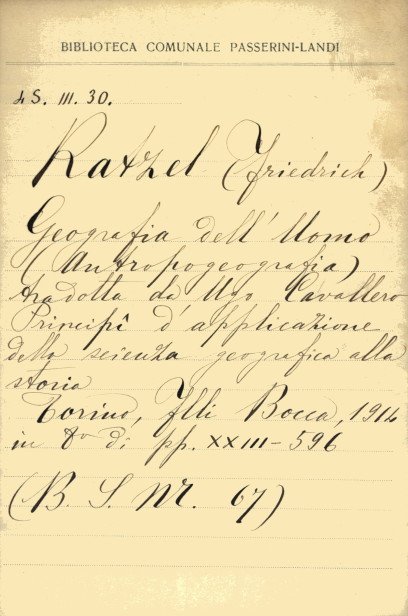 BIBLIOTECA COMUNALE PASSERINI-LANDI
4S. III. 30.
Ratzel (Friedrich)
Geografia dell' Uomo
(Antropogeografia)
tradotta da Ugo Cavallero
Principî d'applicazione
della scienza geografica alla
storia
Torino, Flli Bocca, 1914
in 8º di pp. XXIII-596
(B. S. M. 67)